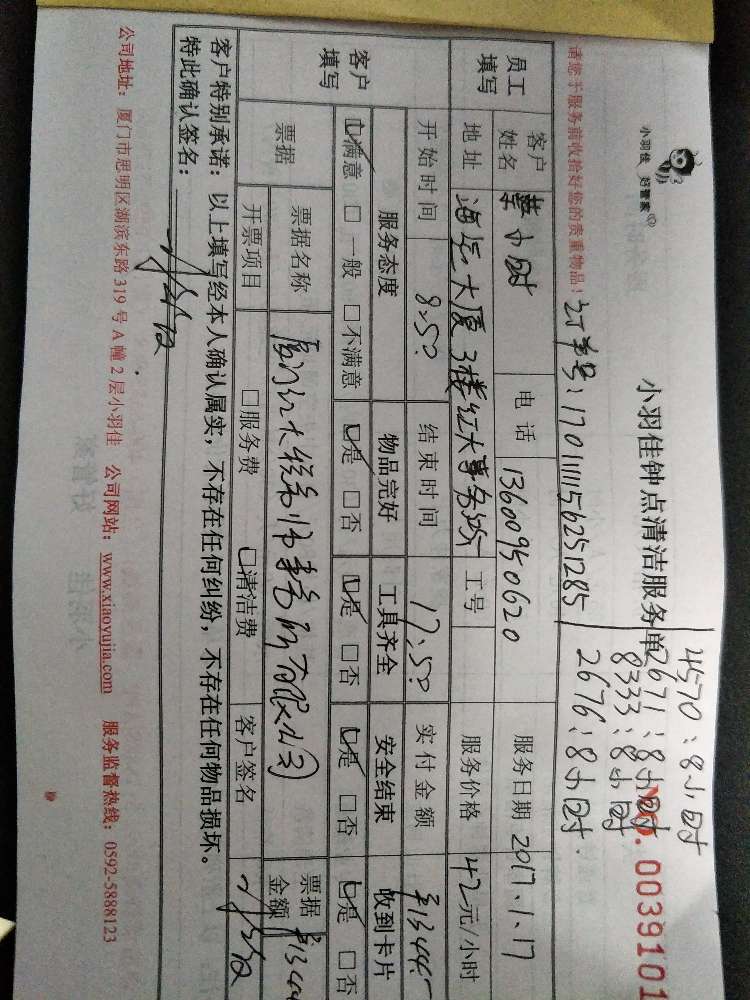 小羽佳 好管家
小羽佳钟点清洁服务单
No.0039101
4570：8小时
2671：8小时
8333：8小时
2676：8小时
请您于服务前收拾好您的贵重物品！
订单号：170111156251285
员工填写 客户姓名 小时 电话 13600950620 服务日期 2017.1.17
地址 海 大厦3楼红大事务所 工号 服务价格 42元/小时
客户填写 开始时间 8:50 结束时间 17:50 实付金额 ¥1344
服务态度 物品完好 工具齐全 安全结束 收到卡片
☑满意 □一般 □不满意 ☑是 □否 ☑是 □否 ☑是 □否 ☑是 □否
票据 票据名称 厦门红大 事务所有限公司 票据金额 ¥1344
开票项目 □服务费 □清洁费 客户签名
客户特别承诺：以上填写经本人确认属实，不存在任何纠纷，不存在任何物品损坏。
特此确认签名：
公司地址：厦门市思明区湖滨东路319号A幢2层小羽佳 公司网站：www.xiaoyujia.com 服务监督热线：0592-5888123